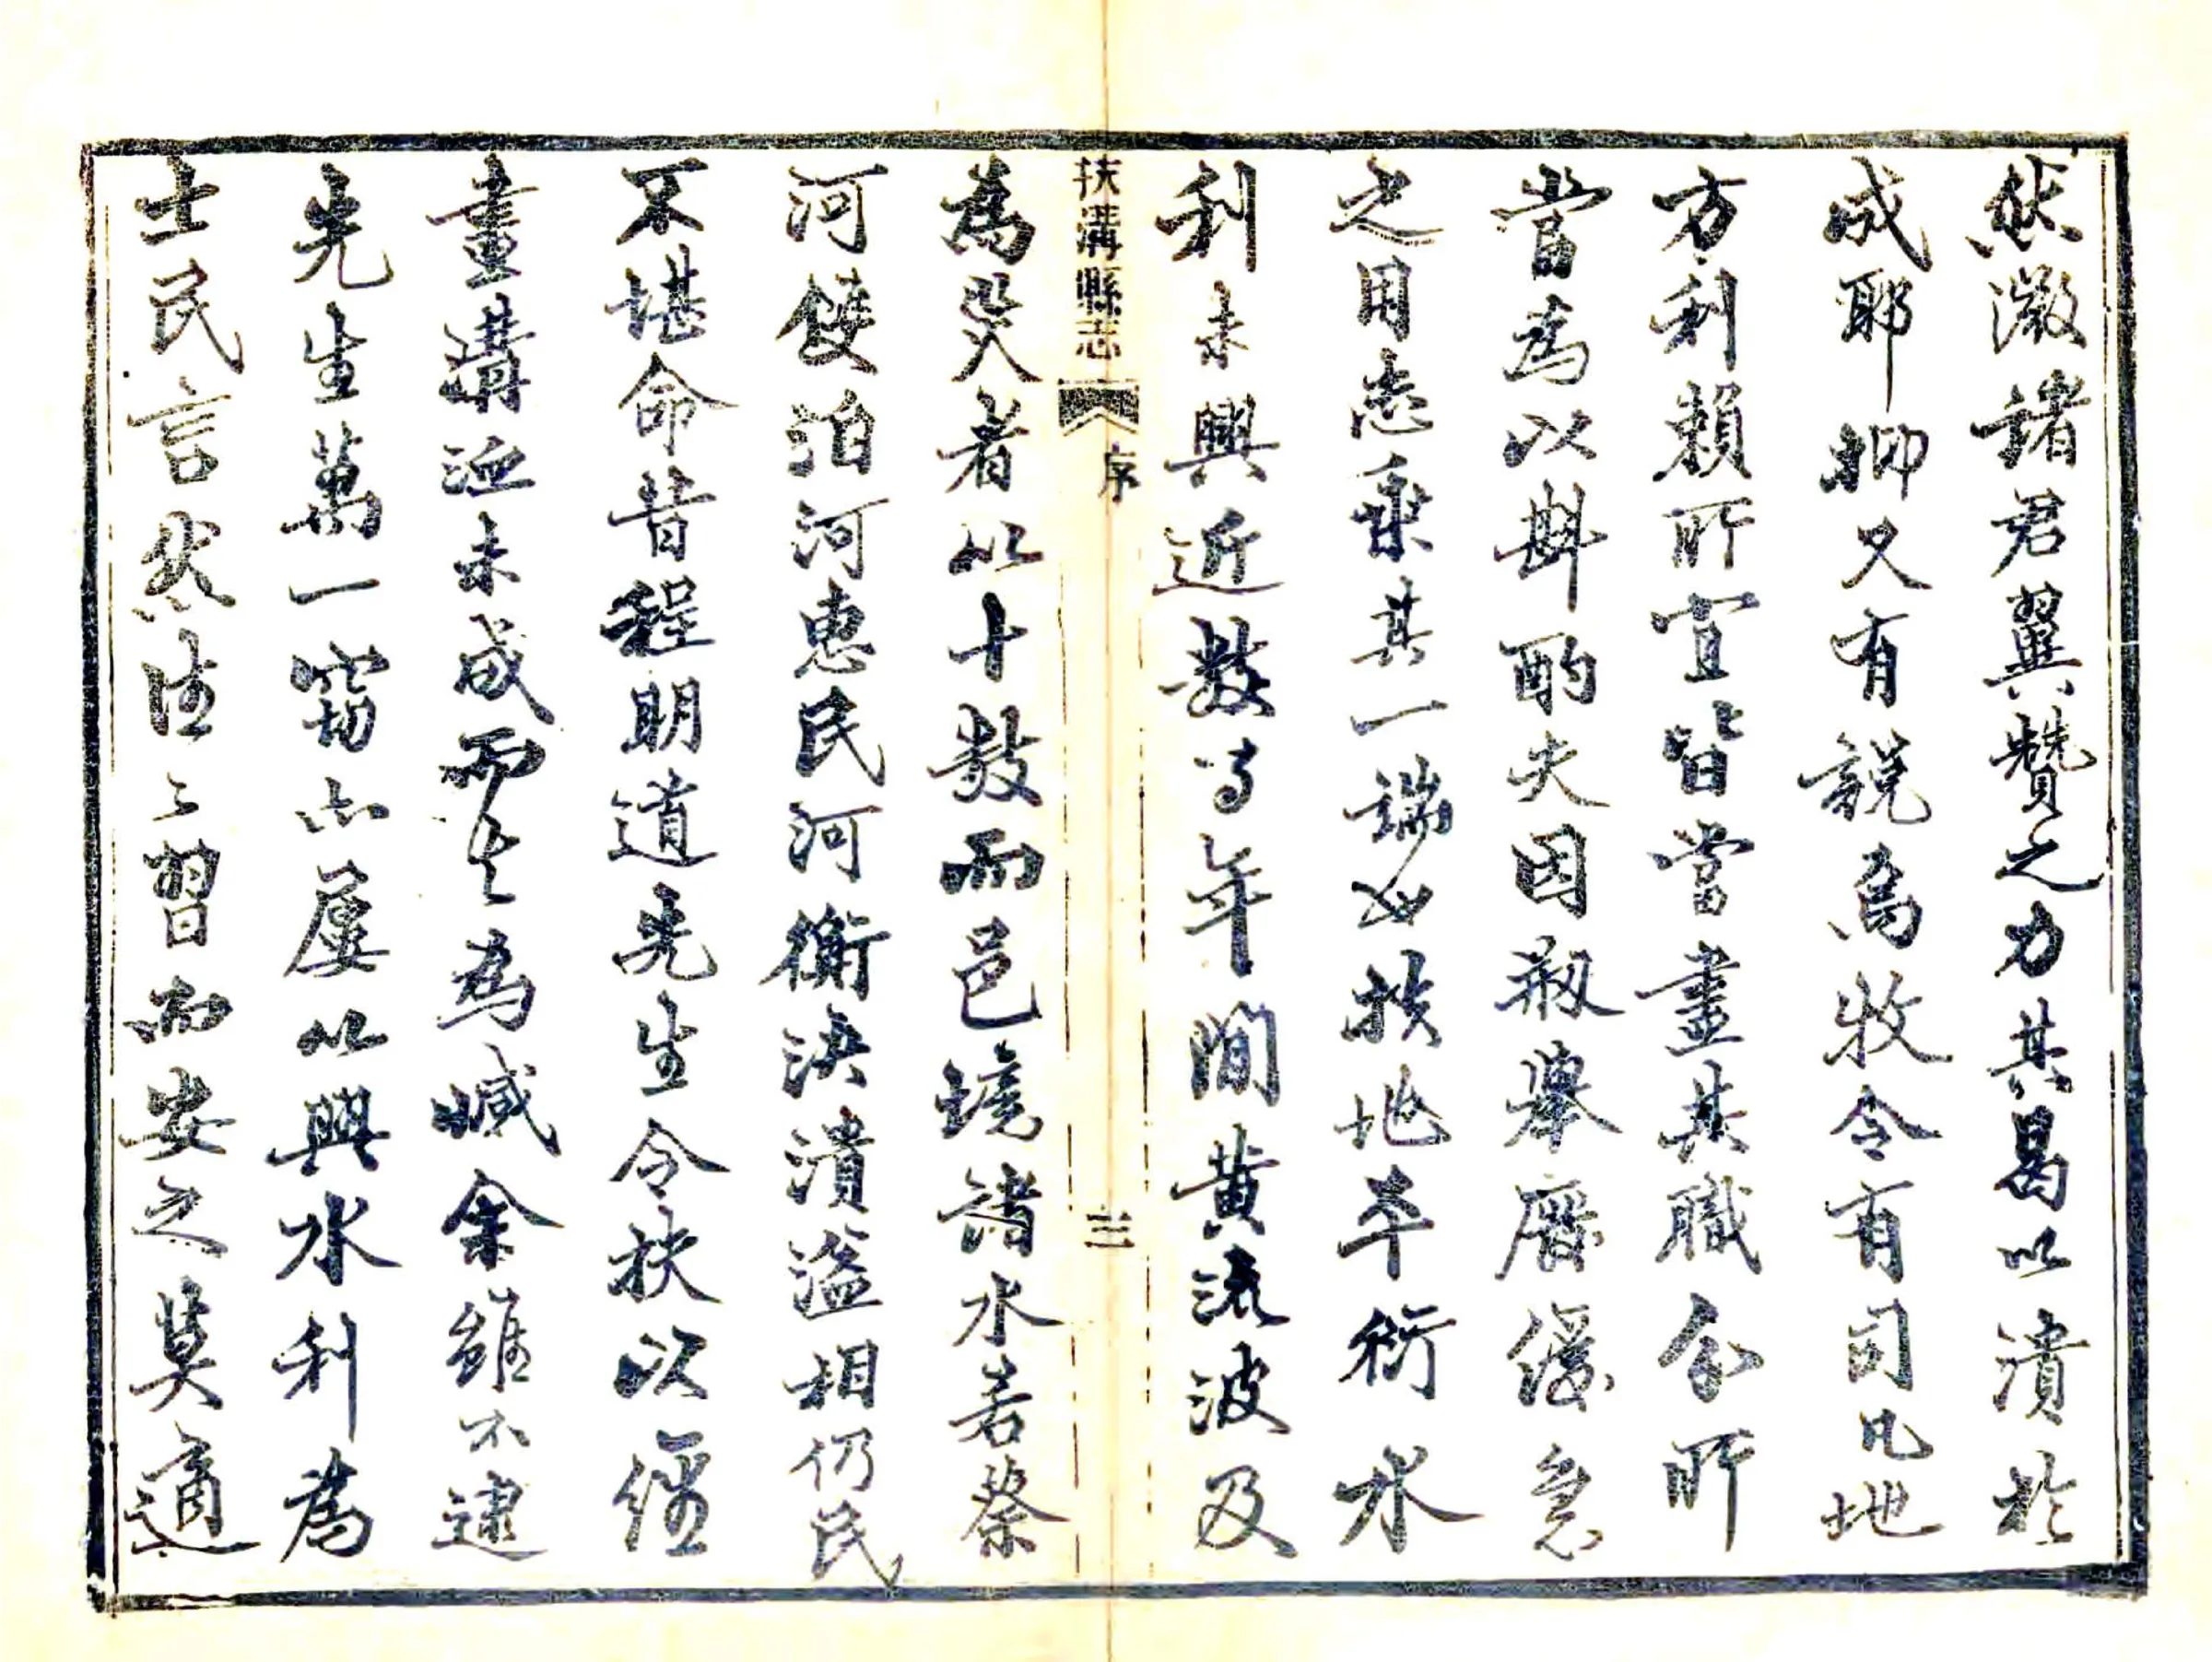 然微諸君翼贊之力其曷以潰於
成耶抑又有說焉牧令有司凡地
方利賴所宜皆當盡其職分所
當為以斟酌夫因剏舉廢緩急
之用志乘其一端如扶地平衍水
利未興近數十年間黃流波及
扶溝縣志 序 三
為災者以十數而邑境諸水若蔡
河雙洎河惠民河衝決潰溢相仍民
不堪命昔程明道先生令扶以經
畫溝洫未成而去為憾余雖不逮
先生萬一竊亦屢以興水利為
士民言然往〻習而安之莫適